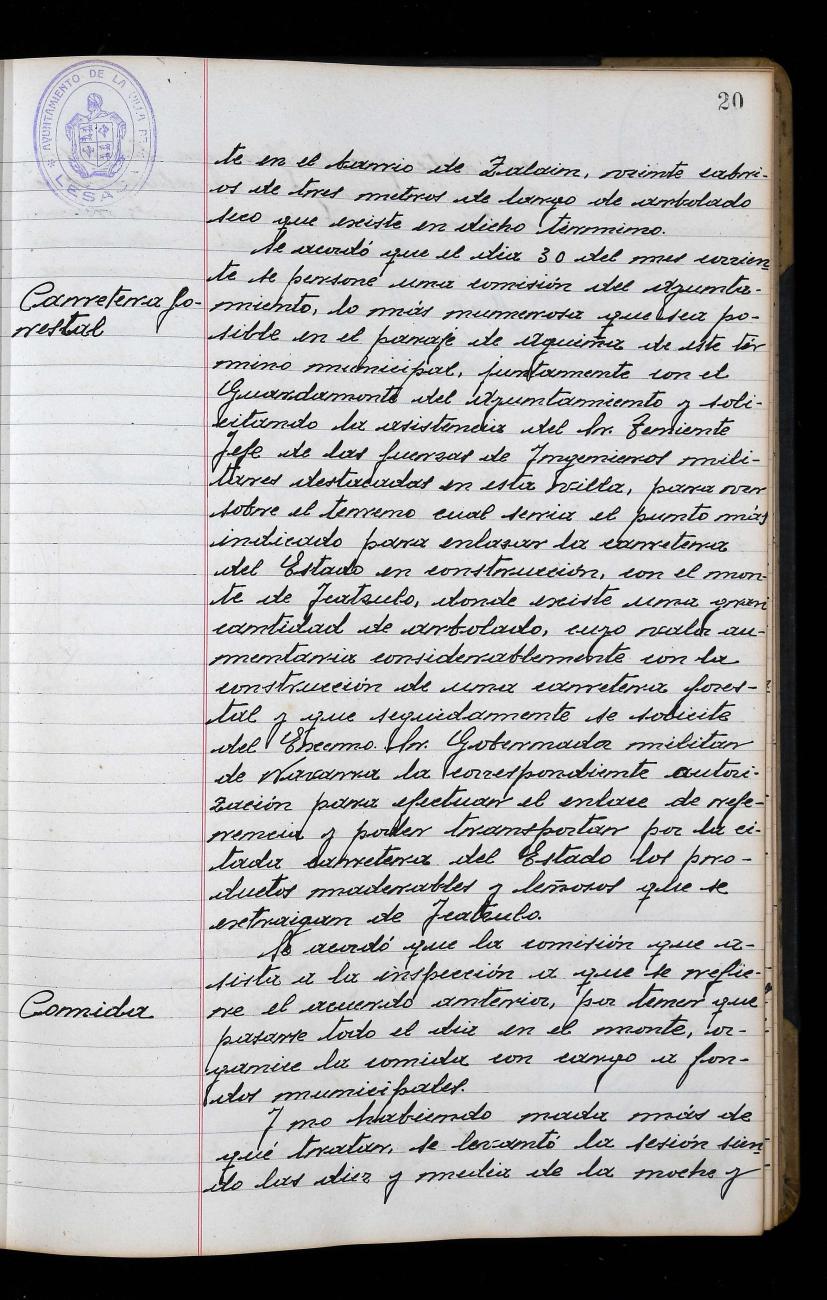 20
AYUNTAMIENTO DE LA VILLA DE
LESACA
te en el barrio de Zalain, veinte cabri-
os de tres metros de largo de arbolado
seco que existe en dicho termino.
Carretera fo-
restal
Se acordó que el dia 30 del mes corrien-
te se persone una comisión del Ayunta-
miento, lo más numerosa que sea po-
sible en el paraje de Aguiña de este tér
mino municipal, juntamente con el
Guardamonte del Ayuntamiento y soli-
citando la asistencia del Sr. Teniente
Jefe de las fuerzas de Ingenieros mili-
tares destacadas en esta villa, para ver
sobre el terreno cual seria el punto más
indicado para enlazar la carretera
del Estado en construcción, con el mon-
te de Jcatzulo, donde existe una gran
cantidad de arbolado, cuyo valor au-
mentaria considerablemente con la
construcción de una carretera fores-
tal y que seguidamente se solicite
del Excmo. Sr. Gobernador militar
de Navarra la correspondiente autori-
zación para efectuar el enlace de refe-
rencia y poder transportar por la ci-
tada carretera del Estado los pro-
ductos maderables y leñosos que se
extraigan de Jcatzulo.
Comida
Se acordó que la comisión que a-
sista a la inspección a que se refie-
re el acuerdo anterior, por tener que
pasarse todo el dia en el monte, or-
ganice la comida con cargo a fon-
dos municipales.
Y no habiendo nada más de
qué tratar, se levantó la sesión sien-
do las diez y media de la noche y